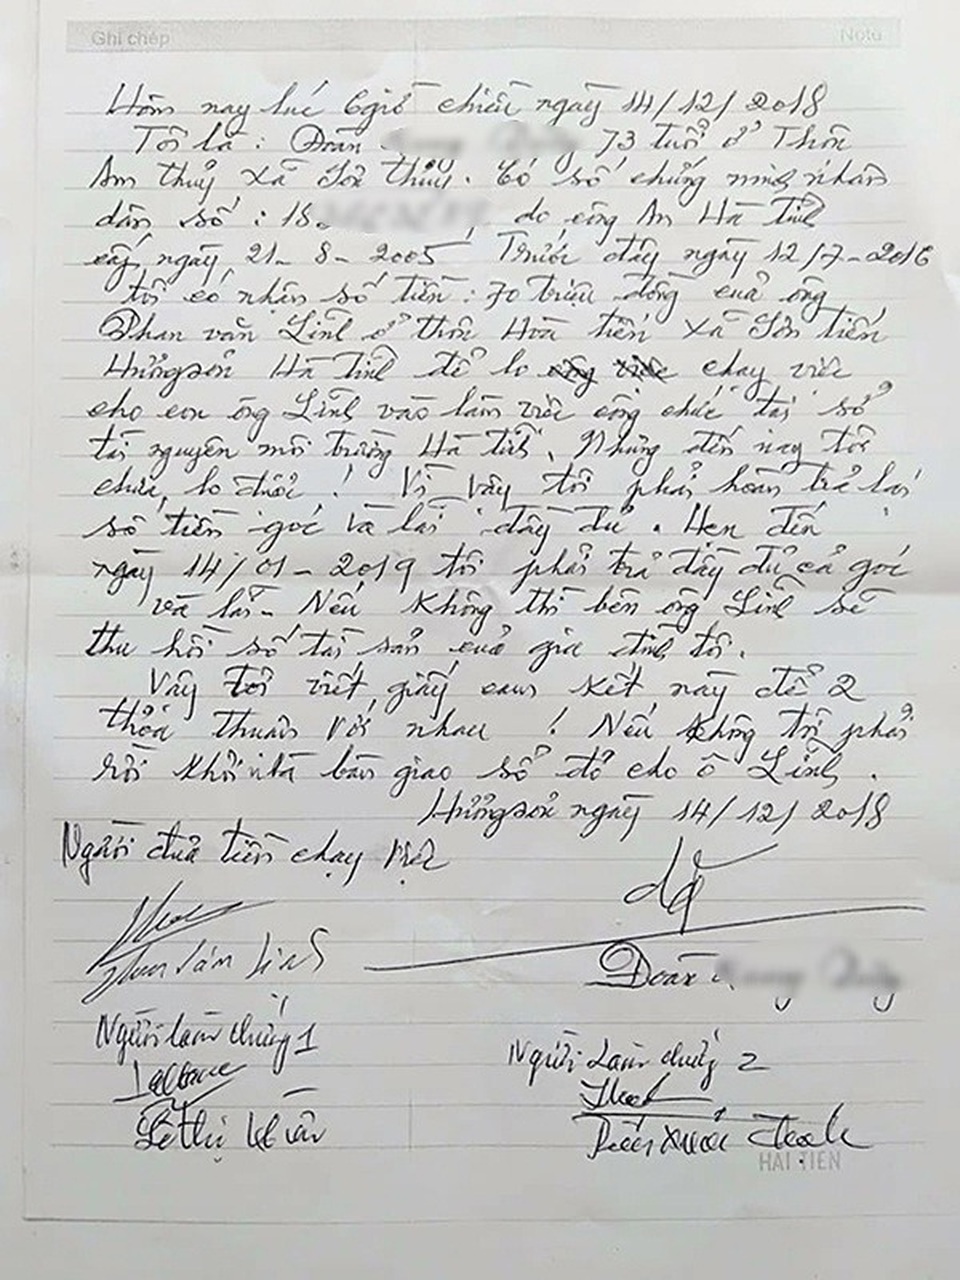 Ghi chép Note
Hôm nay lúc 6 giờ chiều ngày 14/12/2018
Tôi là : Đoàn 73 tuổi ở Thôn
Am thuỷ xã Sơn thuỷ. Có số chứng minh nhân
dân số : 18 do công An Hà Tĩnh
cấp ngày 21-8-2005 Trước đây ngày 12/7-2016
tôi có nhận số tiền : 70 triệu đồng của ông
Phan văn Linh ở thôn Hoà tiến xã Sơn tiến
Hương sơn Hà Tĩnh để lo chạy việc
cho con ông Linh vào làm việc công chức tại sở
tài nguyên môi trường Hà tĩnh. Nhưng đến nay tôi
chưa lo được ! Vì vậy tôi phải hoàn trả lại
số tiền gốc và lãi đầy đủ. Hẹn đến
ngày 14/01-2019 tôi phải trả đầy đủ cả gốc
và lãi - Nếu không thì bên ông Linh sẽ
thu hồi số tài sản của gia đình tôi.
Vậy tôi viết giấy cam kết này để 2
thỏa thuận với nhau ! Nếu không tôi phải
rời khỏi nhà bàn giao sổ đỏ cho ô Linh.
Hương sơn ngày 14/12/2018
Người đưa tiền chạy việc
Đoàn
Người làm chứng 1
Người làm chứng 2
Lê Thị
HAI TIEN